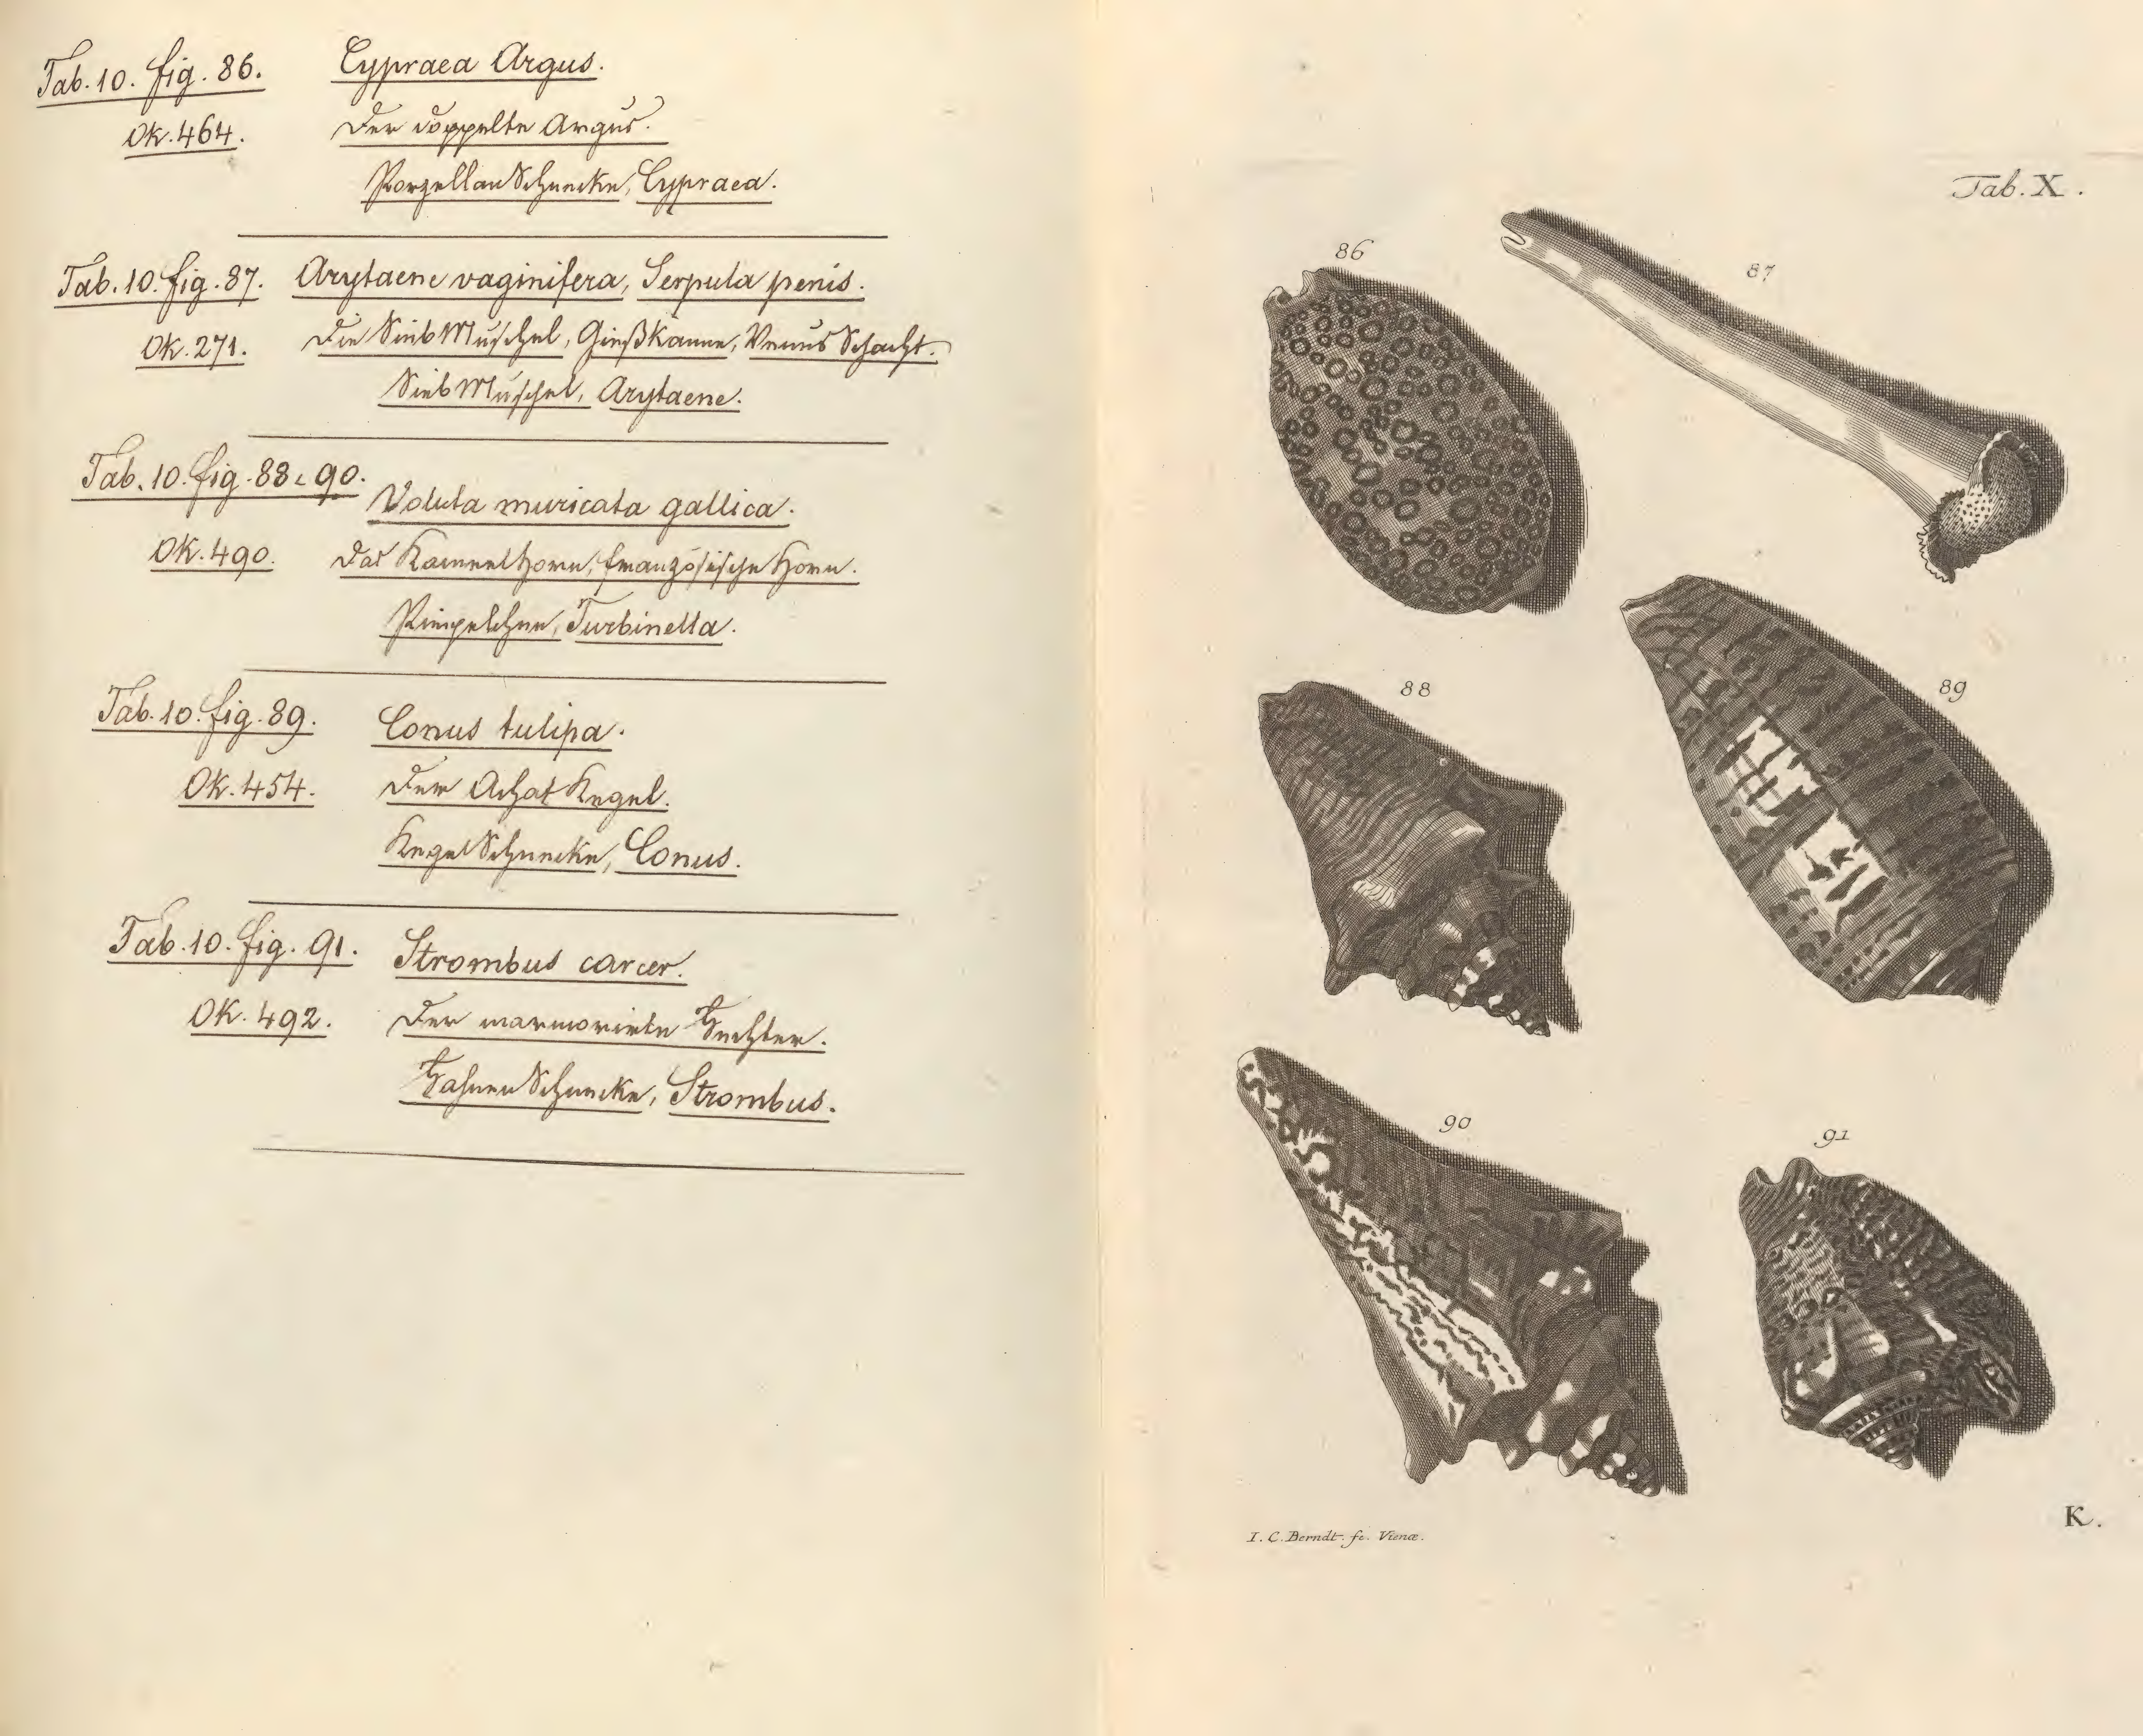 Tab. 10. fig. 86. Cypraea Argus.
Ok. 464. Der doppelte Argus.
PorzellanSchnecke, Cypraea.
Tab. 10. fig. 87. Arytaene vaginifera, Serpula penis.
Ok. 271. Die SiebMuschel, Gießkanne, Venus Schacht.
SiebMuschel, Arytaene.
Tab. 10. fig. 88 90.
Voluta muricata gallica.
Ok. 490. Das KameelHorn, französische Horn.
Turbinella.
Tab. 10. fig. 89. Conus tulipa.
Ok. 454. Der Achat Kegel.
KegelSchnecke, Conus.
Tab. 10. fig. 91. Strombus carcer.
Ok. 492. Der marmorirte Fechter.
Schnecke, Strombus.
Tab. X.
86
87
88
89
90
91
I. C. Berndt. fc. Vienæ.
K.